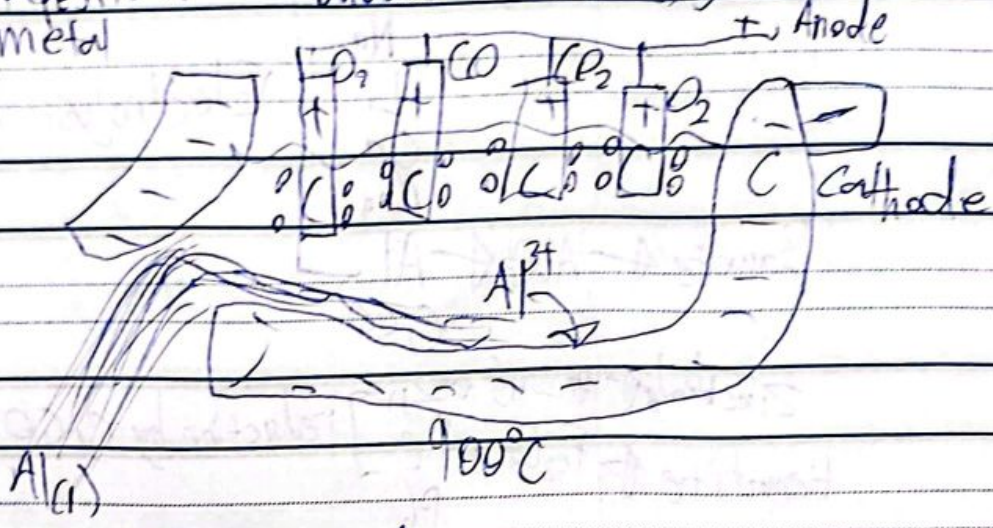 metal
+ Anode
O₂ CO CO₂ O₂
+ + + +
C C C C C
Cathode
Al³⁺
900°C
Al(l)